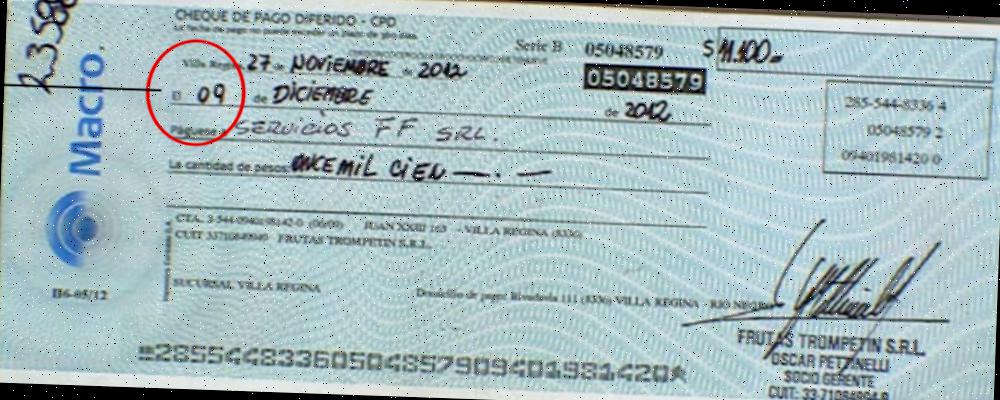 CHEQUE DE PAGO DIFERIDO - CPD
Serie B 05048579 $ 11.100=
27 de NOVIEMBRE de 2012
05048579
El 09 de DICIEMBRE de 2012
Páguese a SERVICIOS FF SRL.
La cantidad de pesos ONCE MIL CIEN —.—
285-544-8336 4
05048579 2
09401981420 0
Macro.
JUAN XXIII 163 - VILLA REGINA (8336)
CUIT FRUTAS TROMPETIN S.R.L.
SUCURSAL VILLA REGINA
Domicilio de pago: Rivadavia 111 (8336) VILLA REGINA - RIO NEGRO
II6-05/12
FRUTAS TROMPETIN S.R.L.
OSCAR PETTANELLI
SOCIO GERENTE
CUIT: 33-71088904-9